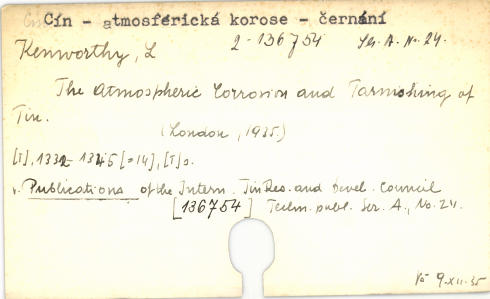 Cín - atmosférická korose - černání
Kenworthy, L 2-136754 Ser. A. No. 24.
The Atmospheric Corrosion and Tarnishing of
Tin.
(London, 1935.)
[T], 1332-1345 [=14], [T] s.
Publications of the Intern. Tin Res. and Devel. Council
[136754] Techn. publ. Ser. A., No. 24.
9.XII.35